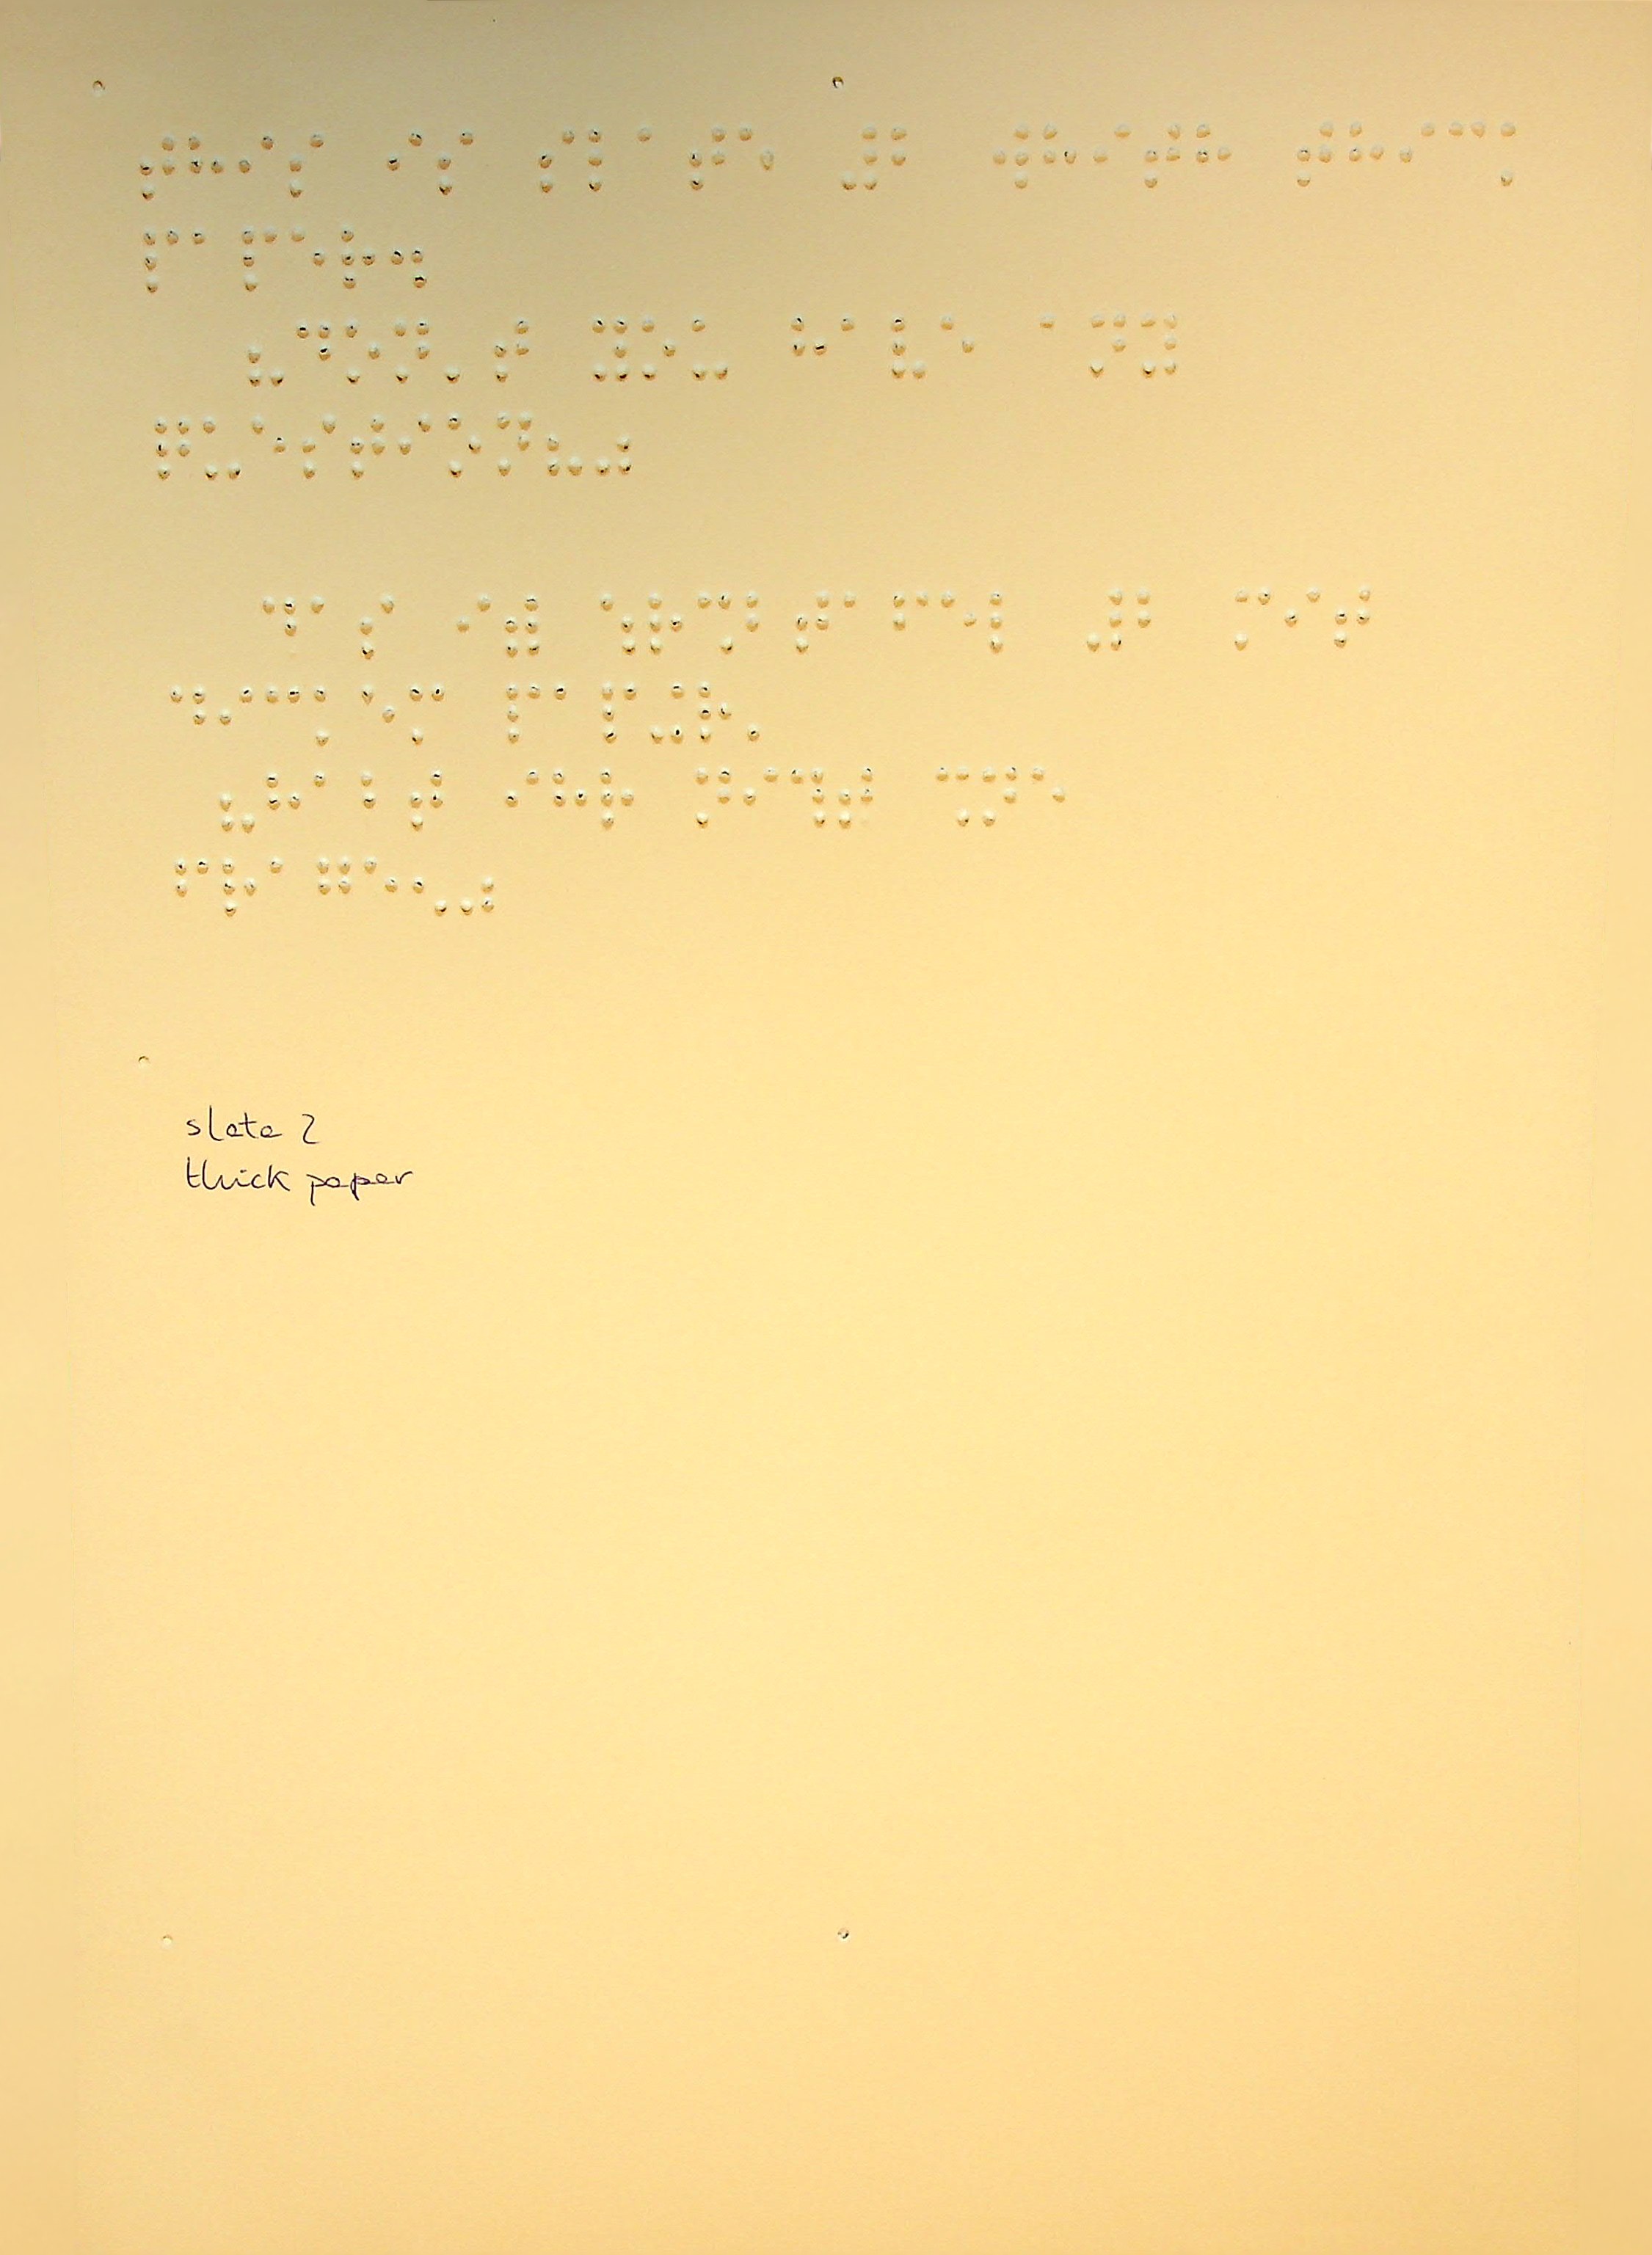 ⠞⠓⠊⠎ ⠊⠎ ⠎⠇⠁⠞⠑ ⠼⠃ ⠺⠊⠞⠓ ⠞⠓⠊⠉⠅
⠏⠁⠏⠑⠗⠲
⠦⠙⠕⠝⠄⠞ ⠽⠕⠥ ⠓⠁⠧⠑ ⠁⠝⠽
⠟⠥⠑⠎⠞⠊⠕⠝⠦⠴
⠙⠁⠎ ⠊⠾ ⠱⠗⠩⠃⠞⠁⠋⠑⠇ ⠼⠃ ⠍⠊⠞
⠙⠊⠉⠅⠑⠍ ⠏⠁⠏⠬⠗⠄
⠦⠓⠁⠃⠞ ⠊⠓⠗ ⠝⠊⠹⠞ ⠩⠝⠑
⠋⠗⠁⠛⠑⠢⠴
slate 2
thick paper